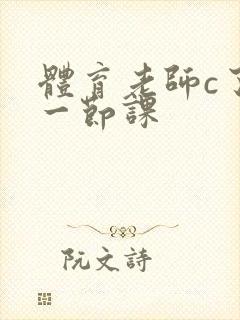 體育老師c了
一節課
阮文詩